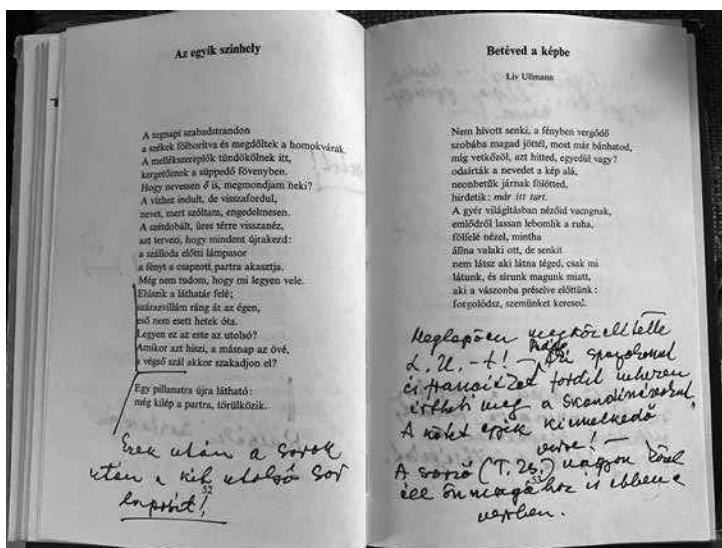 Az egyik színhely
A tegnapi szabadstrandon
a székek fölborítva és megdőltek a homokvárak.
A mellékszereplők tündökölnek itt,
kergetőznek a süppedő fövenyben.
Hogy nevessen ő is, megmondjam neki?
A vízhez indult, de visszafordul,
nevet, mert szóltam, engedelmesen.
A szétdobált, üres térre visszanéz,
azt tervezi, hogy mindent újrakezd:
a szálloda előtti lámpasor
a fényt a csapzott partra akasztja.
Még nem tudom, hogy mi legyen vele.
Elúszik a láthatár felé;
szárazvillám ráng át az égen,
eső nem esett hetek óta.
Legyen ez az este az utolsó?
Amikor azt hiszi, a másnap az övé,
a végső szál akkor szakadjon el?
Egy pillanatra újra látható:
még kilép a partra, törülközik.
Ezek után a sorok
után a két utolsó sor
laposít!
52
Betéved a képbe
Liv Ullmann
Nem hívott senki, a fényben vergődő
szobába magad jöttél, most már bánhatod,
míg vetkőzöl, azt hitted, egyedül vagy?
odaírták a nevedet a kép alá,
neonbetűk járnak fölötted,
hirdetik: már itt tart.
A gyér világításban nézőid vacognak,
emlődről lassan lebomlik a ruha,
fölfelé nézel, mintha
állna valaki ott, de senkit
nem látsz aki látna téged, csak mi
látunk, és sírunk magunk miatt,
aki a vászonba préselve előttünk:
forgolódsz, szemünket keresed.
Meglepően megközelítette
L. U.-t! – Aki spanyolokat
és franciákat fordít nehezen
értheti meg a skandinávokat.
A kötet egyik kiemelkedő
verse! –
A szerző (T. Zs.) nagyon közel
áll önmagához is ebben a
versben.
53